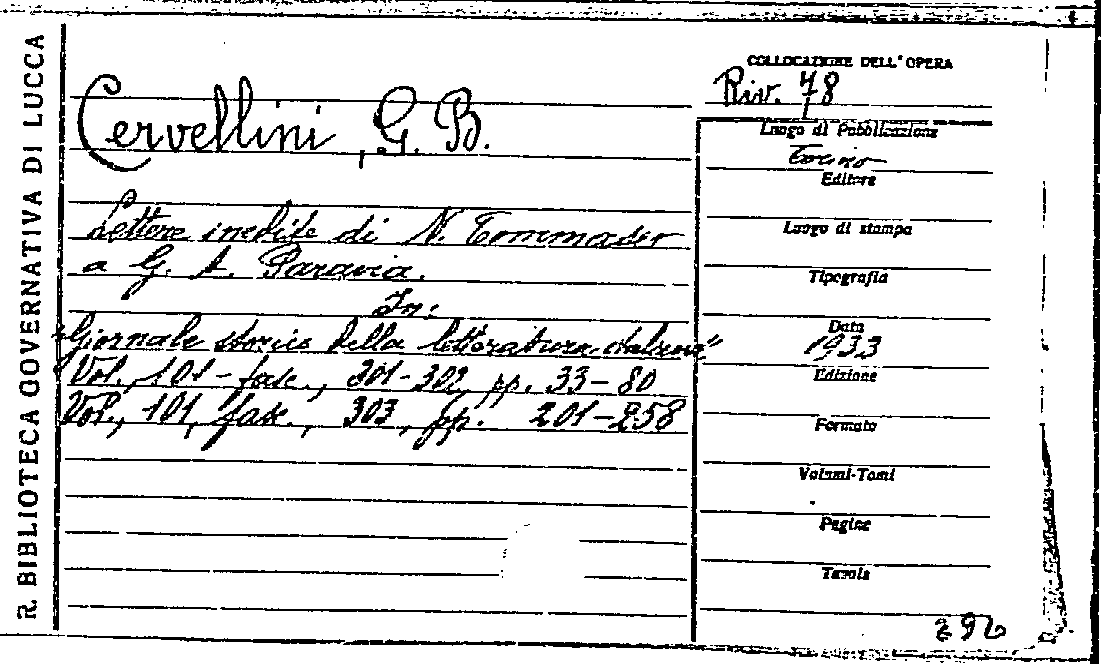 R. BIBLIOTECA GOVERNATIVA DI LUCCA
Cervellini, G. B.
Lettere inedite di N. Tommaseo
a G. A. Paravia.
In:
"Giornale storico della letteratura italiana"
Vol., 101 - fasc., 301-302, pp. 33-80
Vol., 101, fasc., 303, pp. 201-258
COLLOCAZIONE DELL'OPERA
Riv. 48
Luogo di Pubblicazione
Torino
Editore
Luogo di stampa
Tipografia
Data
1933
Edizione
Formato
Volumi-Tomi
Pagine
Tavole
296